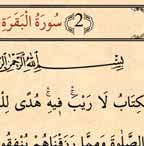 2 سُورَةُ الْبَقَرَةِ
بِسْمِ اللَّهِ الرَّحْمَٰنِ
الْكِتَابُ لَا رَيْبَ ۛ فِيهِ ۛ هُدًى
الصَّلَوٰةَ وَمِمَّا رَزَقْنَاهُمْ يُنْفِقُونَ